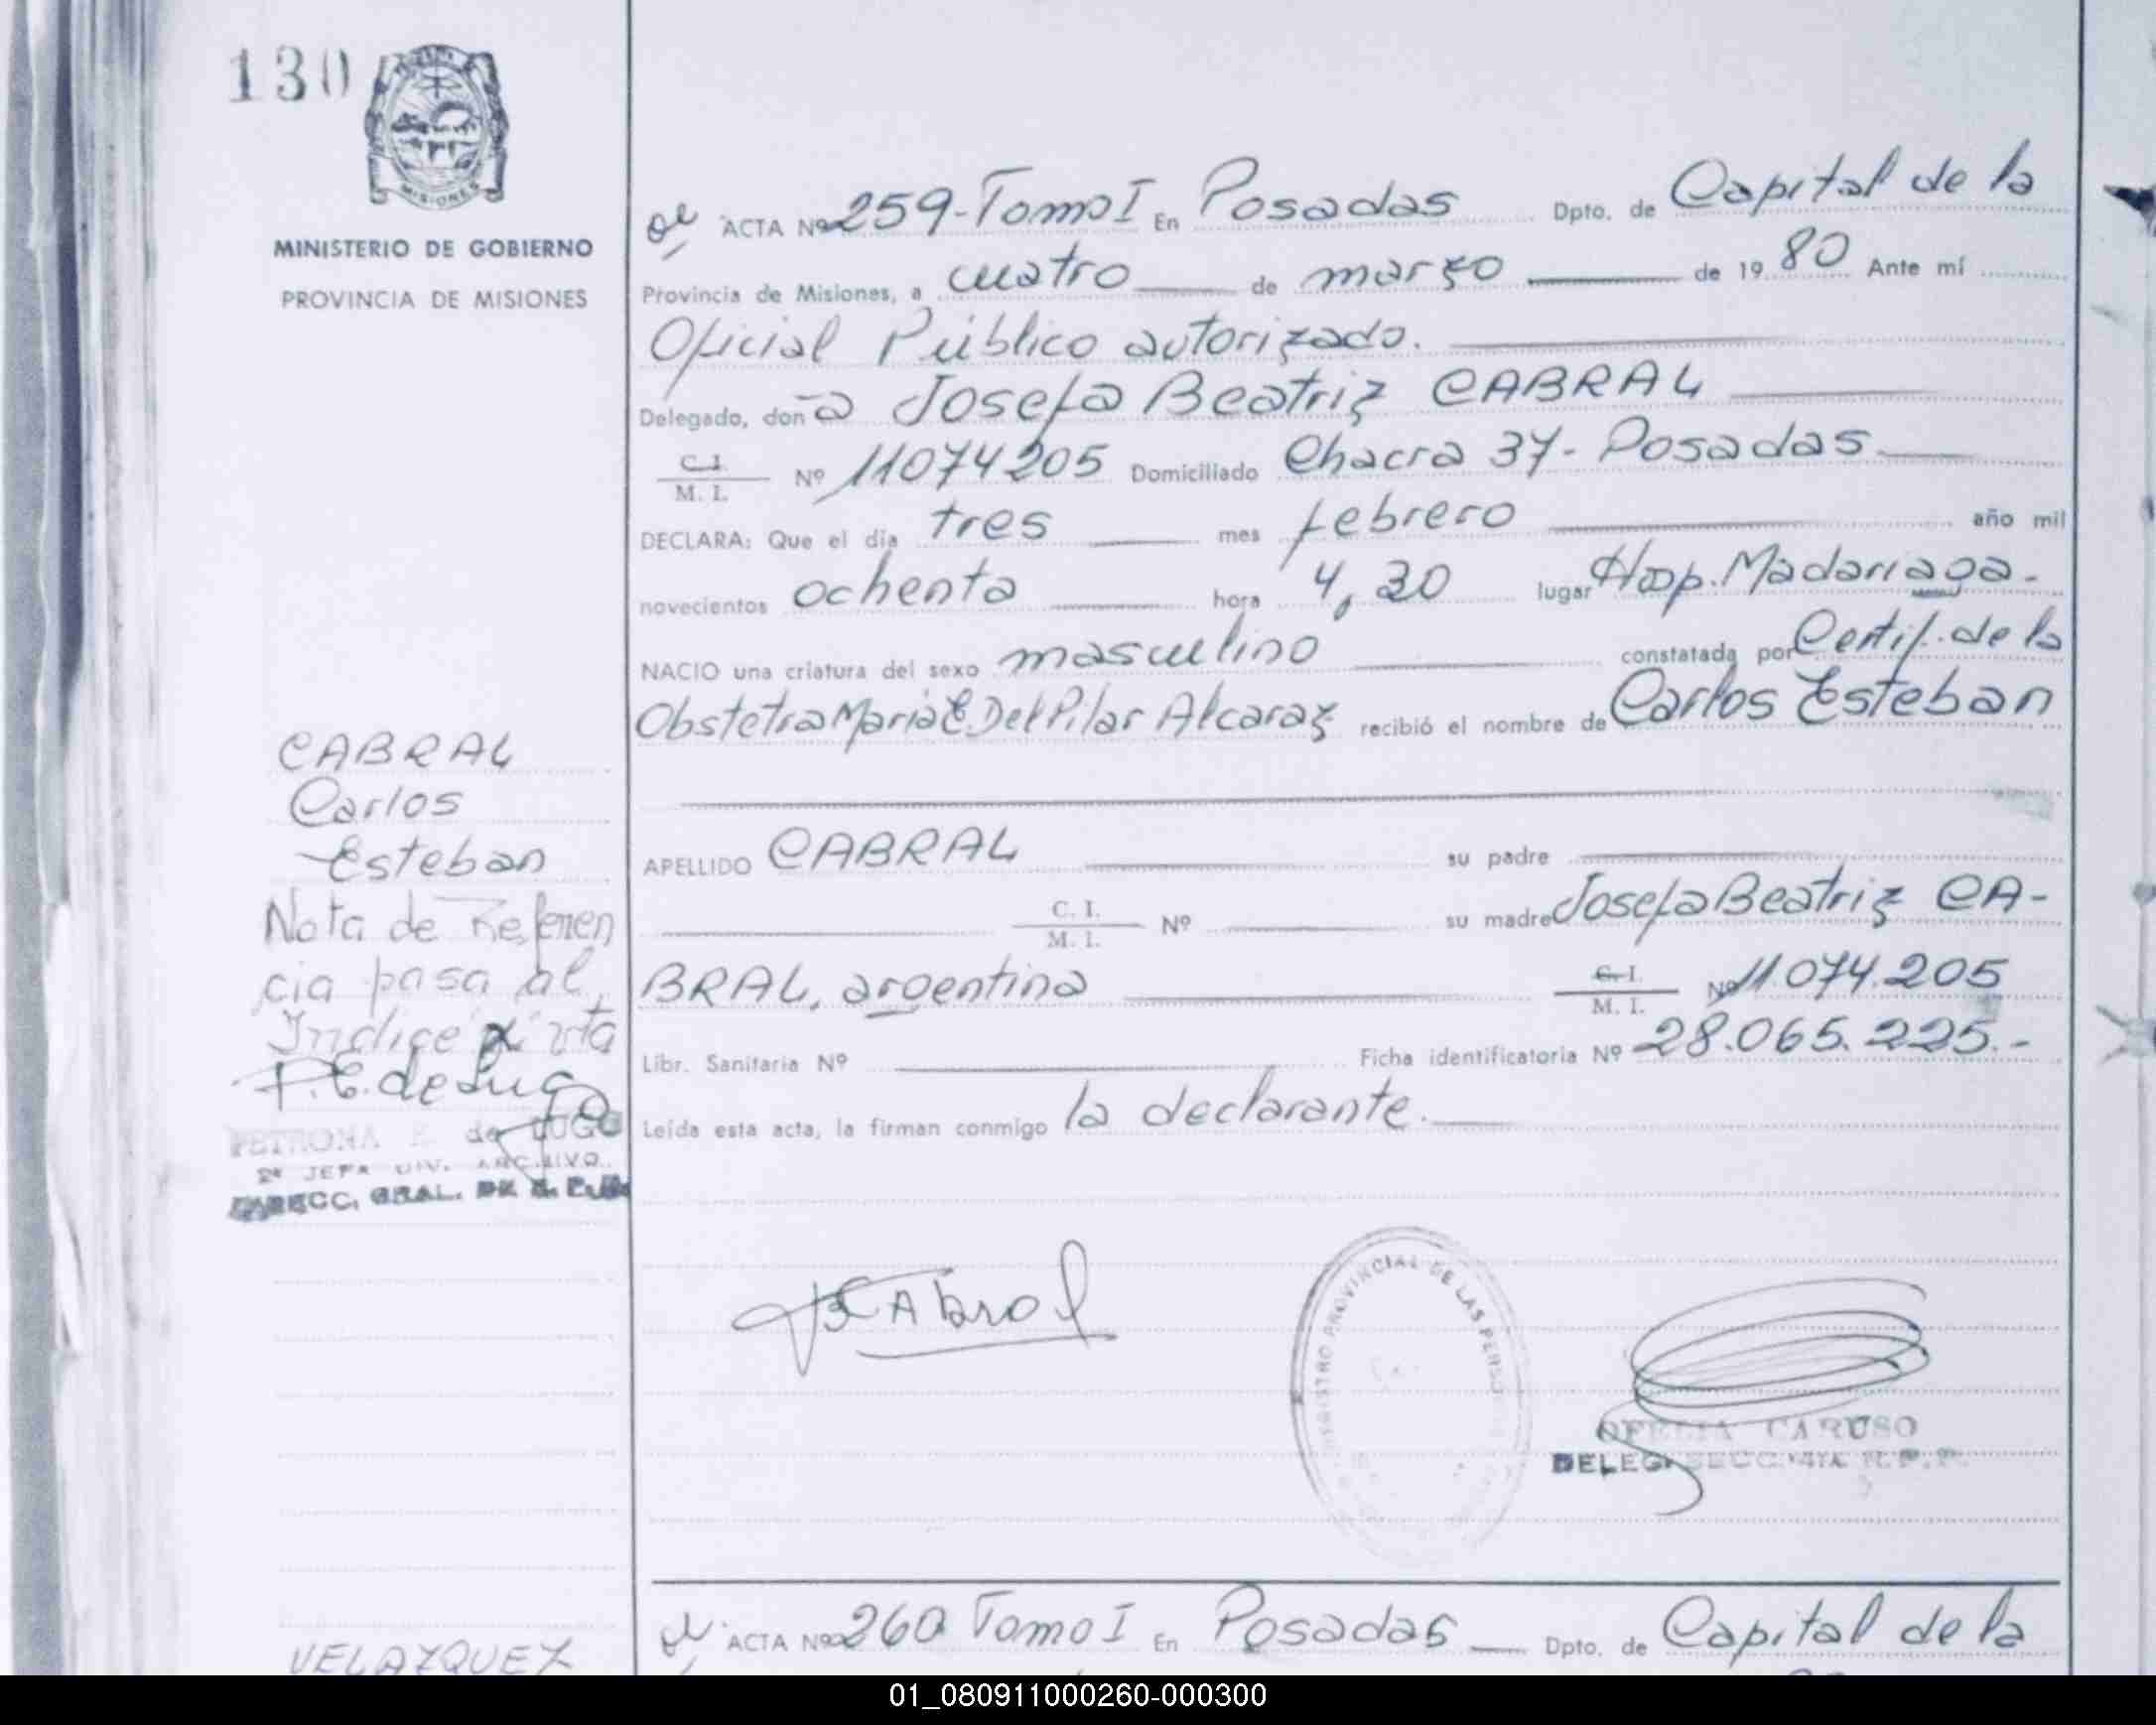 130
MISIONES
MINISTERIO DE GOBIERNO
PROVINCIA DE MISIONES
ACTA Nº 259-Tomo I En Posadas Dpto. de Capital de la
Provincia de Misiones, a cuatro de marzo de 19 80 Ante mí
Oficial Público autorizado.
Delegado, don a Josefa Beatriz CABRAL
C.I. / M. I. Nº 11074205 Domiciliado Chacra 37- Posadas
DECLARA: Que el día tres mes febrero año mil
novecientos ochenta hora 4,30 lugar Hosp. Madariaga-
NACIO una criatura del sexo masculino constatada por Certif. de la
Obstetra Maria E. Del Pilar Alcaraz recibió el nombre de Carlos Esteban
APELLIDO CABRAL su padre
C. I. / M. I. Nº su madre Josefa Beatriz CA-
BRAL, argentina C. I. / M. I. Nº 11.074.205
Libr. Sanitaria Nº Ficha identificatoria Nº 28.065.225.-
Leída esta acta, la firman conmigo la declarante.
CABRAL
Carlos
Esteban
Nota de Referen
cia pasa al
Indice
P.E. de Lugo
PETRONA E. de LUGO
2ª JEFA DIV. ARCHIVO
DIRECC. GRAL. DE
JBCAbral
REGISTRO PROVINCIAL DE LAS PERSO
OFELIA CARUSO
DELEG. SECC. 4TA R.P.P.
ACTA Nº 260 Tomo I En Posadas Dpto. de Capital de la
VELAZQUEZ
01_080911000260-000300